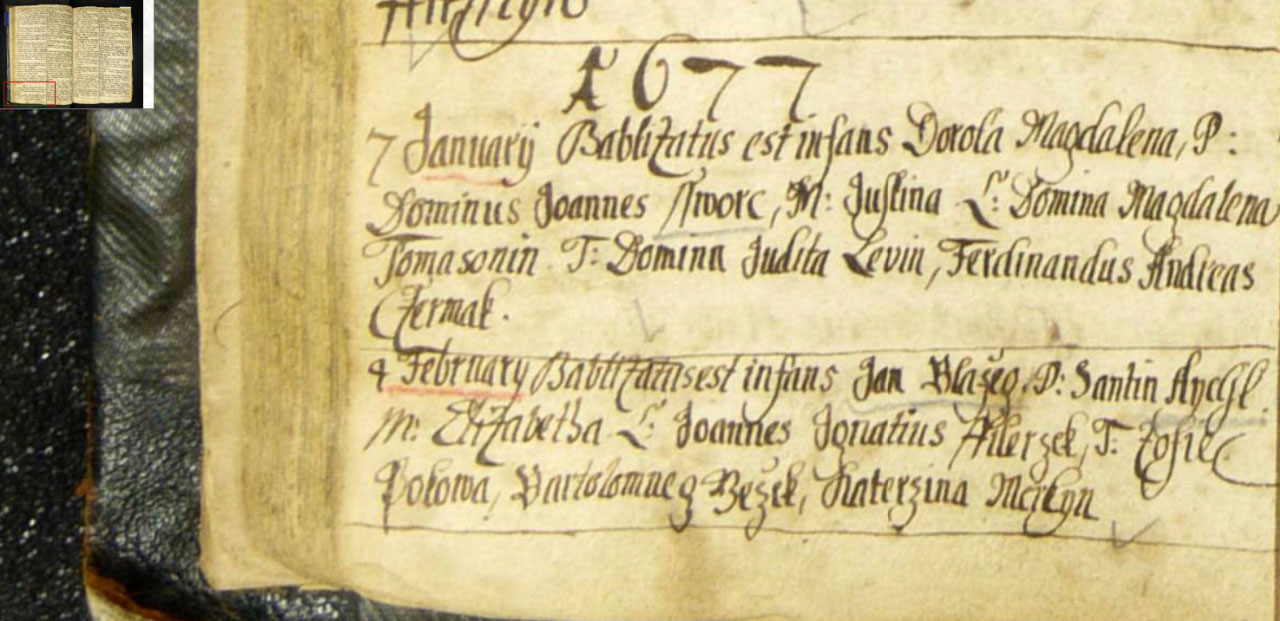 1677
7 Januarij Babtizatus est infans Dorota Magdalena, P:
Dominus Joannes Aworc, M: Justina L: Domina Magdalena
Tomasonin T: Domina Judita Levin, Ferdinandus Andreas
Czermak.
4 February Babtizatus est infans Jan Blažeg, P: Santin Aychl.
M: Elizabetha L: Joannes Ignatius T: Zofie
Pokowa, Bartolomneg Bežek, Katerzina